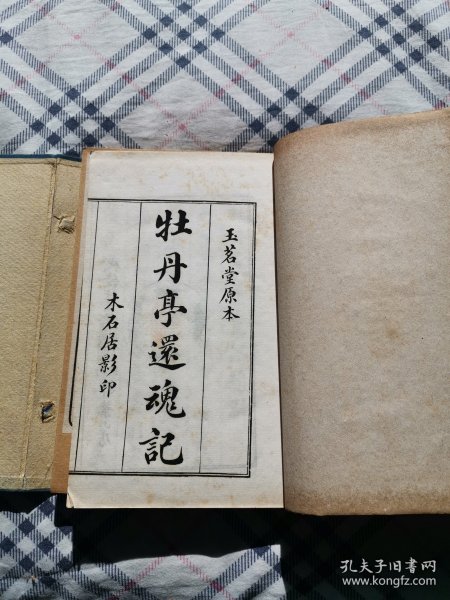 玉茗堂原本
牡丹亭還魂記
木石居影印
孔夫子旧书网
www.kongfz.com